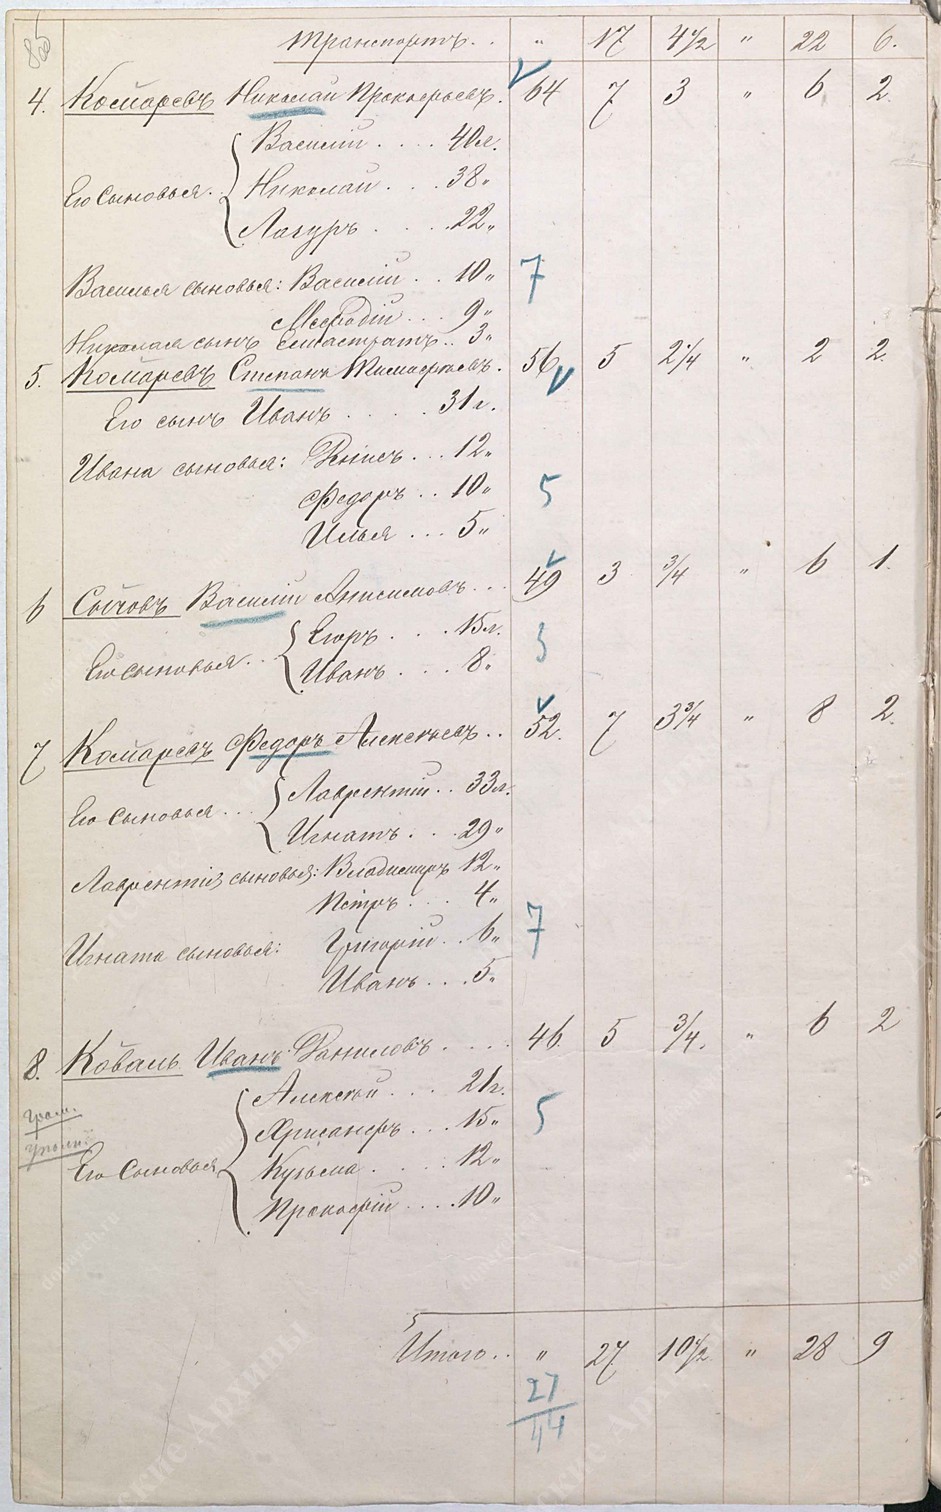 Транспортъ. . " 17 4 1/2 " 22 6.
4. Комаревъ Николай Прокофьевъ. 64 7 3 " 6 2.
Василій . . . . 40 л.
Его сыновья. Николай . . . 38 "
Лазурь . . . . 22 "
Василья сыновья: Василій . . 10 " 7
Мефодій . . . 9 "
Николая сынъ Елистратъ . . 3 "
5. Комаревъ Степанъ Тимофеевъ. 56 5 2 1/4 " 2 2.
Его сынъ Иванъ . . . . 31 г.
Ивана сыновья: Денисъ . . . 12 "
Федоръ . . 10 " 5
Илья . . . 5 "
6 Сычовъ Василій Анисимовъ . . . 49 3 3/4 " 6 1.
Его сыновья . . Егоръ . . . . 15 л. 3
Иванъ . . . 8 "
7 Комаревъ Федоръ Алексеевъ . . 52. 7 3 3/4 " 8 2.
Его сыновья . . . Лаврентій . . 33 л.
Игнатъ . . . . 29 "
Лаврентія сыновья: Владимиръ 12 "
Петръ . . . . 4 "
Игната сыновья: Григорій . . 6 " 7
Иванъ . . . 5 "
8. Коваль Иванъ Даниловъ . . . . 46. 5 3/4. " 6 2
Алексей . . . 21 г.
Хрисанфъ . . . 15 " 5
Его сыновья Кузьма . . . . 12 "
Прокофій . . . . 10 "
Итого . . " 27 10 1/2 " 28 9
27
44